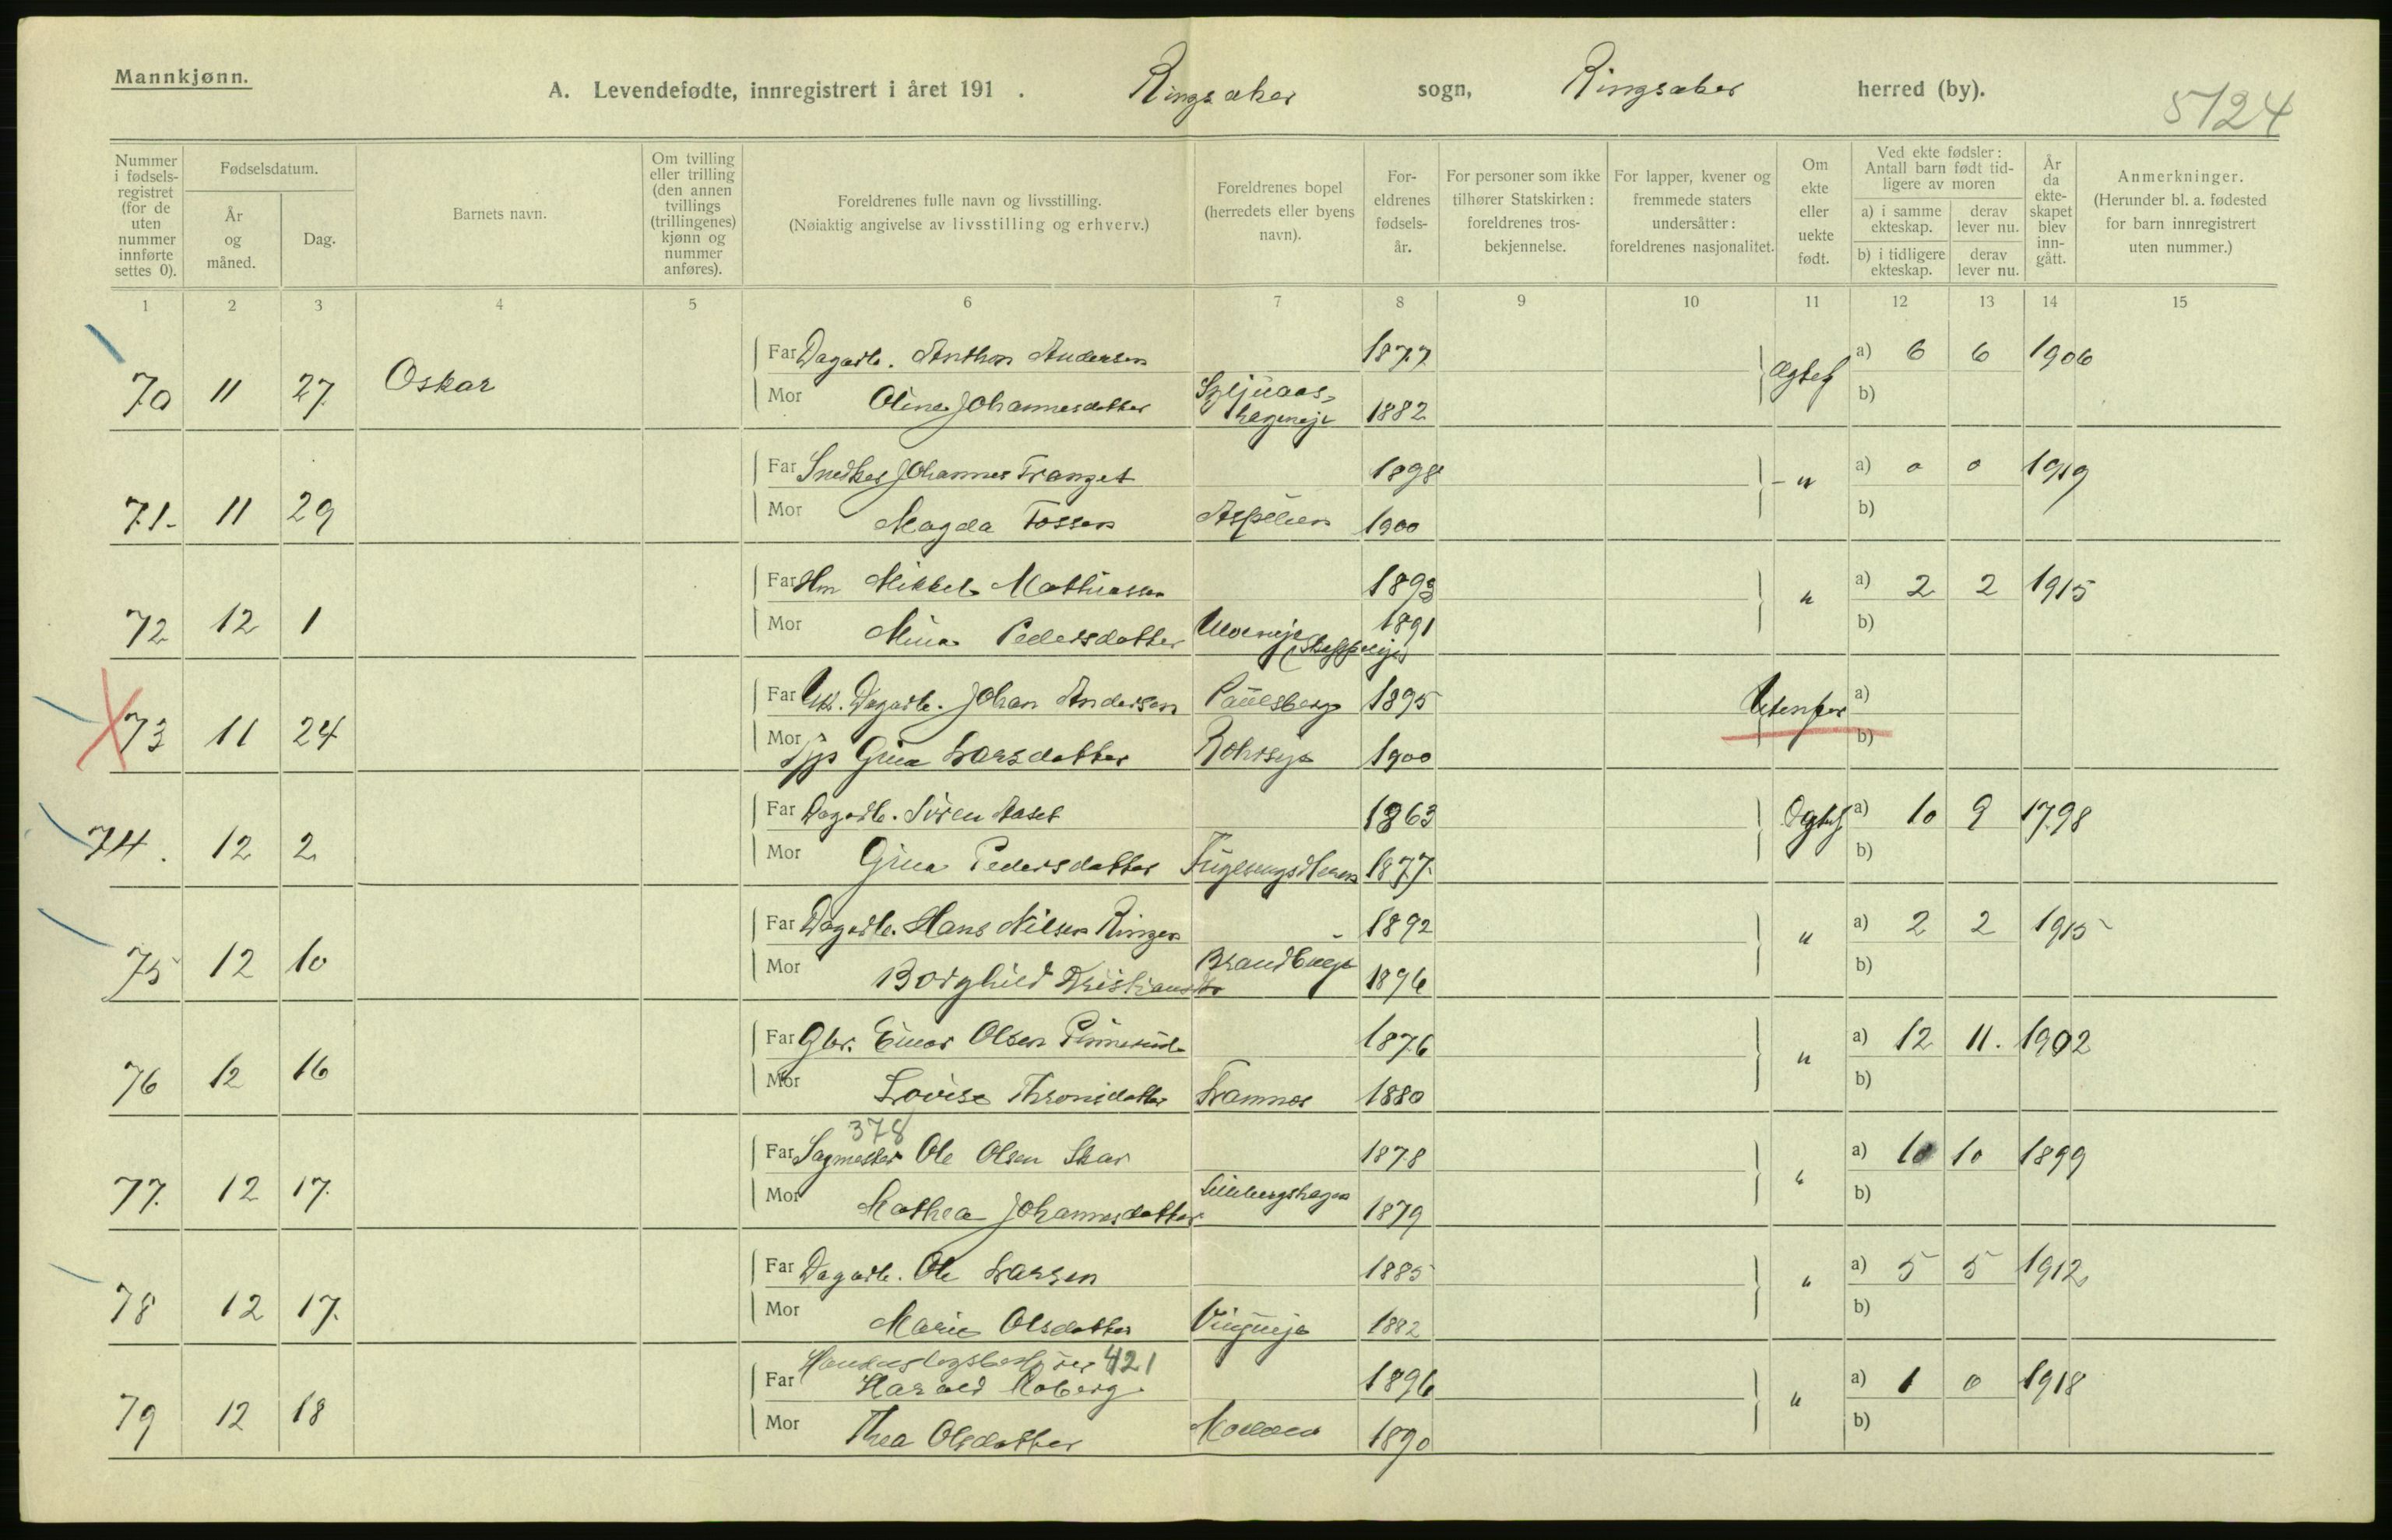 Mannkjønn.
A. Levendefødte, innregistrert i året 191 . Ringsaker sogn, Ringsaker herred (by).
5124
Nummer i fødsels-registret (for de uten nummer innførte settes 0).
Fødselsdatum.
År og måned.
Dag.
Barnets navn.
Om tvilling eller trilling (den annen tvillings (trillingenes) kjønn og nummer anføres).
Foreldrenes fulle navn og livsstilling.
(Nøiaktig angivelse av livsstilling og erhverv.)
Foreldrenes bopel (herredets eller byens navn).
For-eldrenes fødsels-år.
For personer som ikke tilhører Statskirken: foreldrenes tros-bekjennelse.
For lapper, kvener og fremmede staters undersåtter: foreldrenes nasjonalitet.
Om ekte eller uekte født.
Ved ekte fødsler: Antall barn født tid-ligere av moren
a) i samme ekteskap.
derav lever nu.
b) i tidligere ekteskap.
derav lever nu.
År da ekte-skapet blev inn-gått.
Anmerkninger.
(Herunder bl. a. fødested for barn innregistrert uten nummer.)
1 2 3 4 5 6 7 8 9 10 11 12 13 14 15
Far Dagarb. Anthon Andersen 1877 a) 6 6 1906
70 11 27 Oskar Mor Oline Johannesdatter 1882 Ægtef b)
Far Snedker Johannes Franzet 1898 a) 0 0 1919
71- 11 29 Mor Magda Fossen Aspelien 1900 - " b)
Far Hm Mikkel Mathiassen 1893 a) 2 2 1915
72 12 1 Mor Mina Pedersdatter 1891 " b)
Far Uk. Dagarb. Johan Andersen Paulsberg 1895 Utenfor a)
73 11 24 Mor Pjp Gina Larsdatter 1900 b)
Far Dagarb. Søren Aaset 1863 Ægtef a) 10 9 1798
74. 12 2 Mor Gina Pedersdatter 1877. b)
Far Dagarb. Hans Nilsen Ringen 1892 a) 2 2 1915
75 12 10 Mor Borghild Kristiansdtr 1896 " b)
Far Gbr. Einar Olsen 1876 a) 12 11. 1902
76 12 16 Mor Lovise Thronsdatter Framnes 1880 " b)
378
Far Sagmester Ole Olsen Skar 1878 a) 10 10 1899
77. 12 17. Mor Mathea Johannesdatter 1879 " b)
Far Dagarb. Ole Larsen 1885 a) 5 5 1912
78 12 17. Mor Marie Olsdatter 1882 " b)
Handelslagsbestyrer 421
Far Harald Moberg 1896 a) 1 0 1918
79 12 18 Mor Thea Olsdatter Moelven 1890 " b)